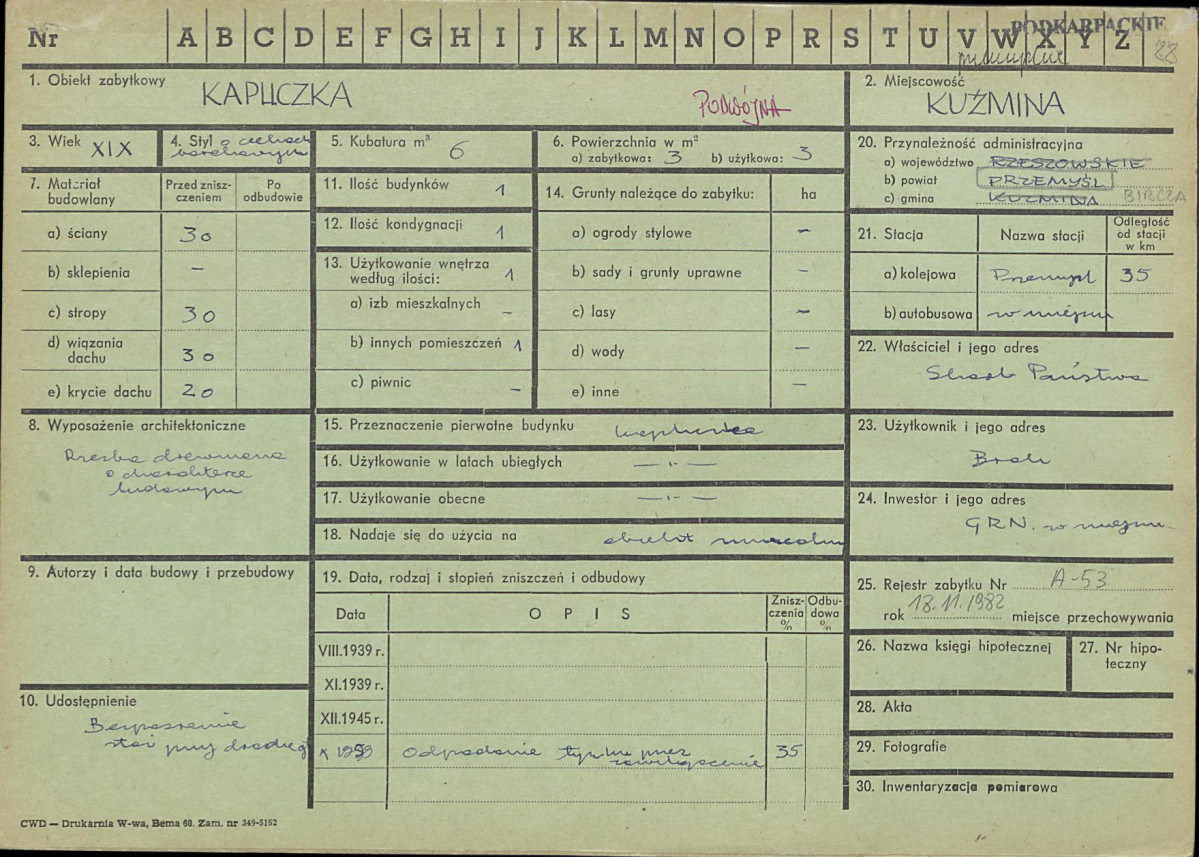 Nr A B C D E F G H I J K L M N O P R S T U V W X Y Z
PODKARPACKIE
88
1. Obiekt zabytkowy
KAPLICZKA
PODWÓJNA
2. Miejscowość
KUŹMINA
3. Wiek XIX
4. Styl o cechach
barokowych
5. Kubatura m³ 6
6. Powierzchnia w m²
a) zabytkowa: 3 b) użytkowa: 3
7. Materiał
budowlany
Przed znisz-
czeniem
Po
odbudowie
a) ściany 30
b) sklepienia —
c) stropy 30
d) wiązania
dachu 30
e) krycie dachu 20
11. Ilość budynków 1
12. Ilość kondygnacji 1
13. Użytkowanie wnętrza
według ilości: 1
a) izb mieszkalnych —
b) innych pomieszczeń 1
c) piwnic —
14. Grunty należące do zabytku: ha
a) ogrody stylowe —
b) sady i grunty uprawne —
c) lasy —
d) wody —
e) inne —
20. Przynależność administracyjna
a) województwo RZESZOWSKIE
b) powiat PRZEMYŚL
c) gmina KUŹMINA BIRCZA
21. Stacja
Nazwa stacji
Odległość
od stacji
w km
a) kolejowa Przemyśl 35
b) autobusowa w miejscu
22. Właściciel i jego adres
Skarb Państwa
23. Użytkownik i jego adres
Brak
24. Inwestor i jego adres
GRN. w miejscu
25. Rejestr zabytku Nr A-53
rok 18.11.1982 miejsce przechowywania
26. Nazwa księgi hipotecznej
27. Nr hipo-
teczny
28. Akta
29. Fotografie
30. Inwentaryzacja pomiarowa
8. Wyposażenie architektoniczne
Rzeźba drewniana
o charakterze
ludowym
15. Przeznaczenie pierwotne budynku kapliczka
16. Użytkowanie w latach ubiegłych — " —
17. Użytkowanie obecne — " —
18. Nadaje się do użycia na obiekt
9. Autorzy i data budowy i przebudowy
10. Udostępnienie
stoi przy drodze
19. Data, rodzaj i stopień zniszczeń i odbudowy
Data
OPIS
Znisz-
czenia
%
Odbu-
dowa
%
VIII.1939 r.
XI.1939 r.
XII.1945 r.
X 1959 Odpadanie tynku przez
zawilgocenie 35
CWD — Drukarnia W-wa, Bema 60. Zam. nr 349-5162